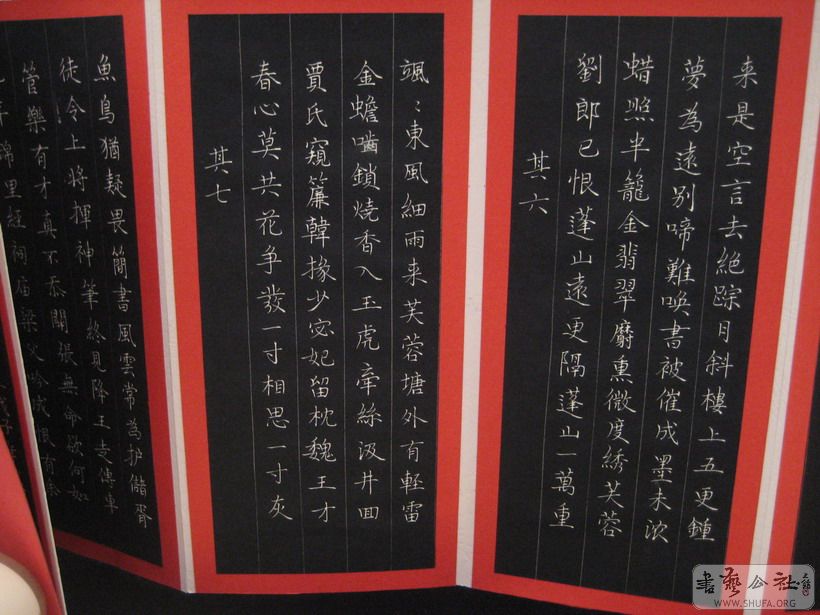 来是空言去絕踪月斜樓上五更鍾
夢為遠別啼難喚書被催成墨未浓
蜡照半籠金翡翠麝熏微度綉芙蓉
劉郎已恨蓬山遠更隔蓬山一萬重
其六
颯〻東風細雨来芙蓉塘外有輕雷
金蟾嚙鎖燒香入玉虎牽絲汲井回
賈氏窺簾韓掾少宓妃留枕魏王才
春心莫共花爭發一寸相思一寸灰
其七
魚鳥猶疑畏簡書風雲常為护儲胥
徒令上將揮神筆終見降王走傳車
管樂有才真不忝關張無命欲何如
年錦里經祠庙梁父吟成恨有余
書藝公社
WWW.SHUFA.ORG